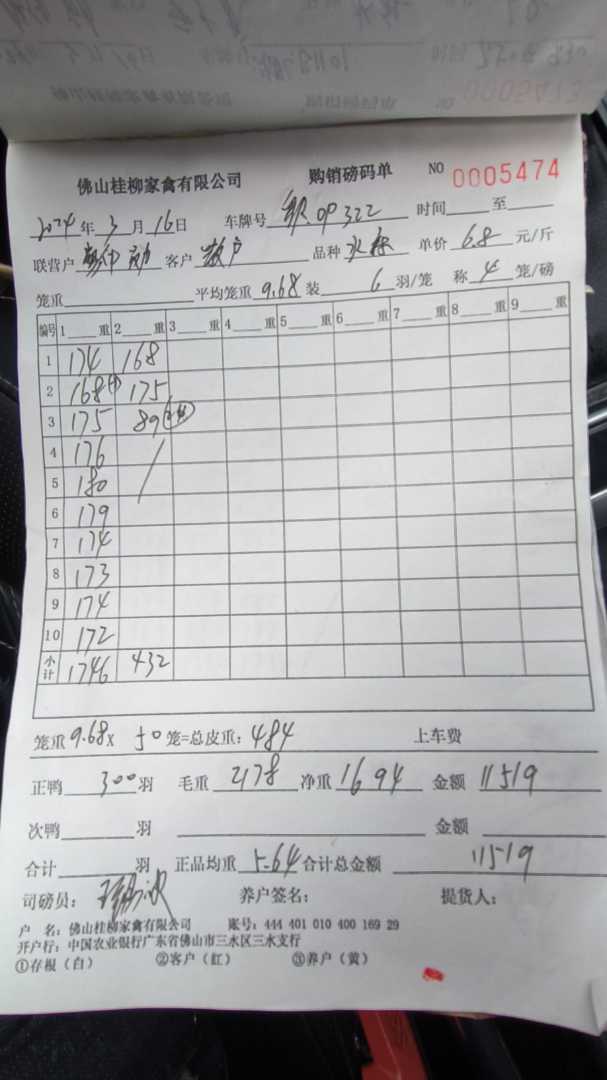 佛山桂柳家禽有限公司 购销磅码单 NO 0005474
2024年3月16日 车牌号 0P322 时间 至
联营户 客户 散户 品种 水 单价 6.8 元/斤
笼重 平均笼重 9.68 装 6 羽/笼 称 4 笼/磅
编号 1 重 2 重 3 重 4 重 5 重 6 重 7 重 8 重 9 重
1 174 168
2 168 175
3 175 89
4 176
5 180
6 179
7 174
8 173
9 174
10 172
小计 1746 432
笼重 9.68 x 50 笼=总皮重: 484 上车费
正鸭 300 羽 毛重 2178 净重 1694 金额 11519
次鸭 羽 金额
合计 羽 正品均重 5.64 合计总金额 11519
司磅员: 养户签名: 提货人:
户 名: 佛山桂柳家禽有限公司 账号: 444 401 010 400 169 29
开户行: 中国农业银行广东省佛山市三水区三水支行
①存根（白） ②客户（红） ③养户（黄）